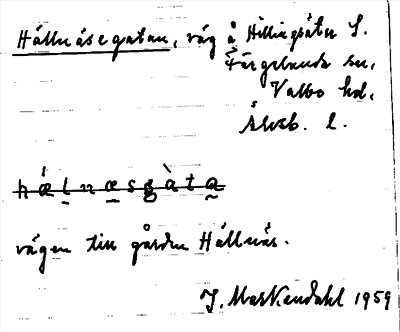 Hållnäsegatan, väg å Hillingsäter S.
Färgelanda sn,
Valbo hd,
Älvsb. l.
hǽl̠næ̠sgàta̰
vägen till gården Hållnäs.
J. Markendahl 1959